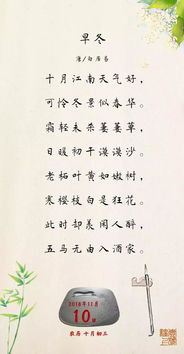 早冬
唐/白居易
十月江南天气好，
可怜冬景似春华。
霜轻未杀萋萋草，
日暖初干漠漠沙。
老柘叶黄如嫩树，
寒樱枝白是狂花。
此时却羡闲人醉，
五马无由入酒家。
2018年11月
10
农历 十月初三